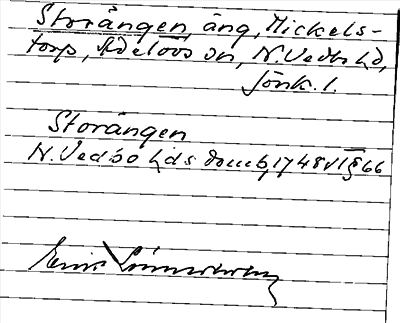 Storängen, äng, Mickels-
torp, Adelövs sn, N. Vedbo hd,
Jönk. l.
Storängen
N. Vedbo hds domb 1748 VT § 66